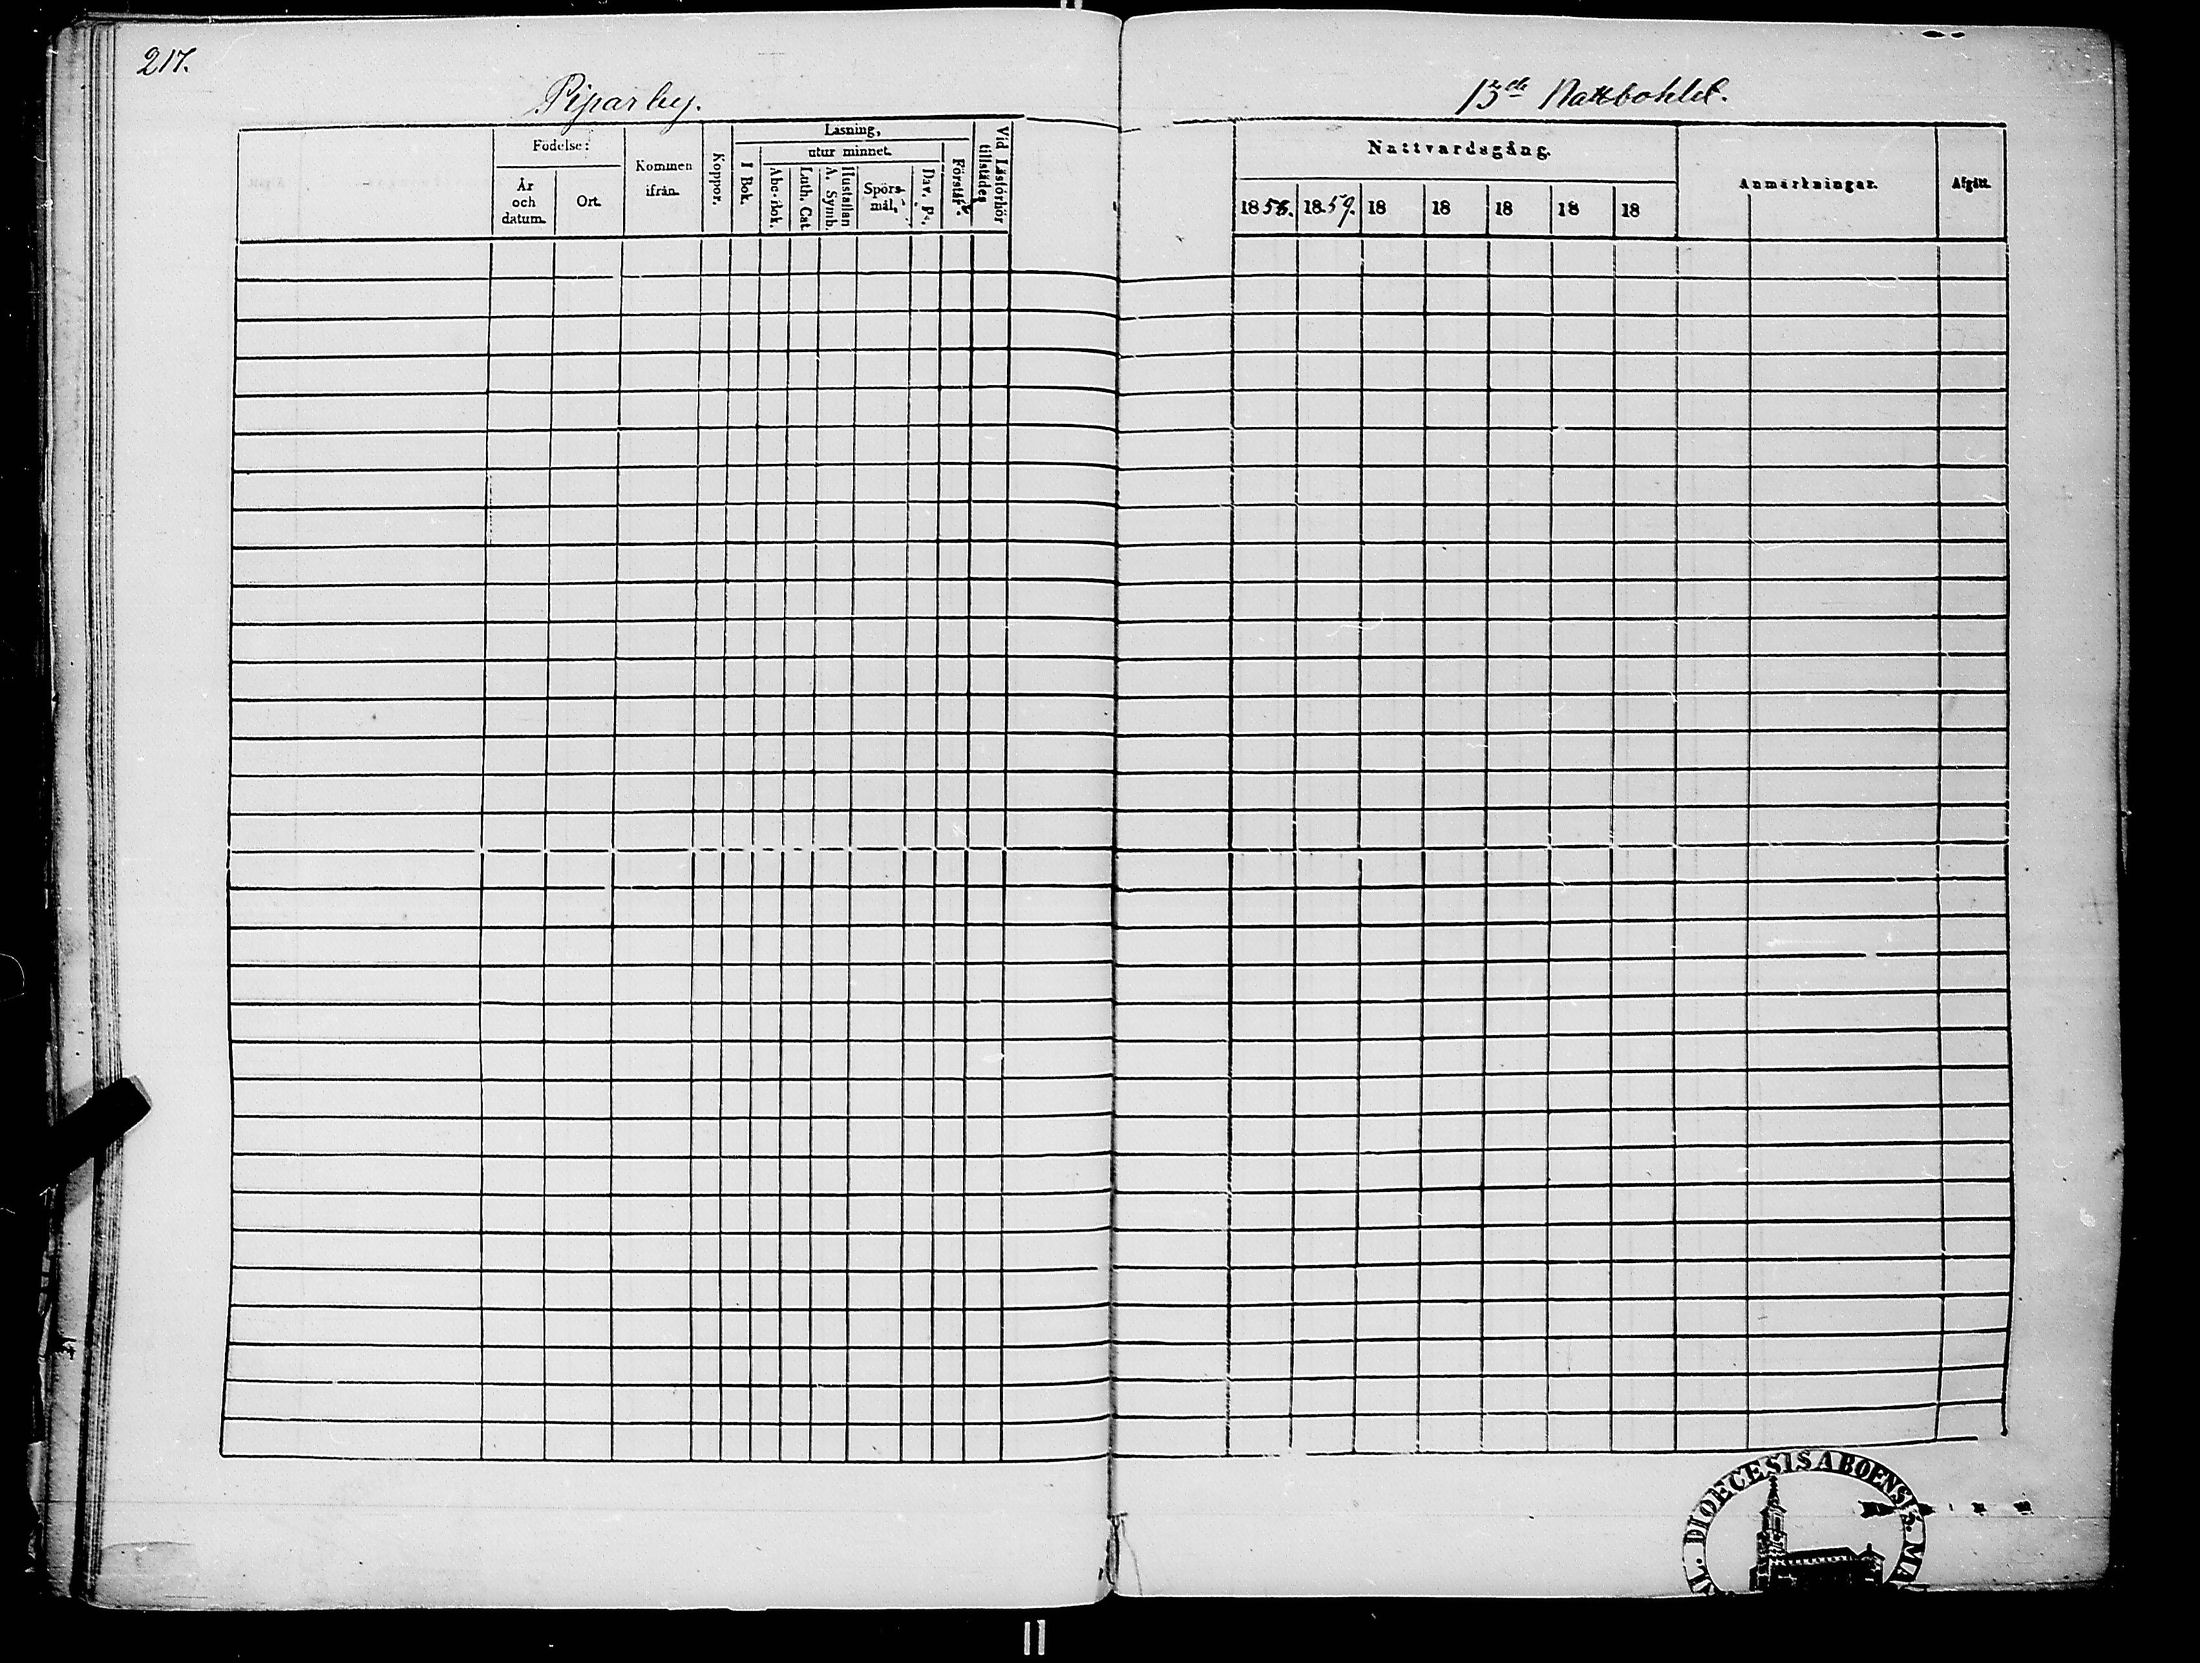 217.
Piparby.
13de Nattbohlet.
Födelse:
År
och
datum.
Ort.
Kommen
ifrån.
Koppor.
Läsning,
I Bok.
utur minnet.
Abc-Bok.
Luth. Cat.
Hustaflan
A. Symb.
Spörs-
mål.
Dav. Ps.
Förstår.
Vid Läsförhör
tillstädes
Nattvardsgång.
1858. 1859. 18 18 18 18 18
Anmärkningar.
Afgått.
DIOECESIS ABOENSIS.